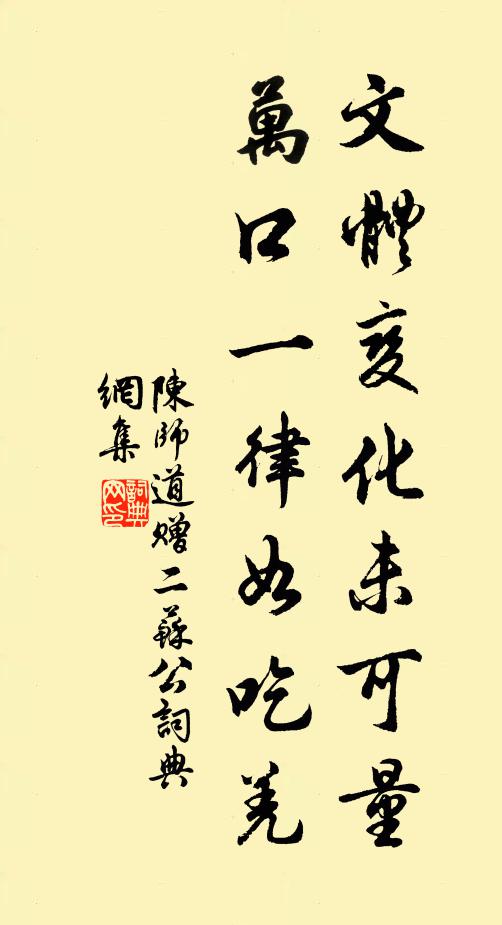 文體變化未可量
萬口一律如吃羌
陳師道贈二蘇公詞典
網集
詞典網印